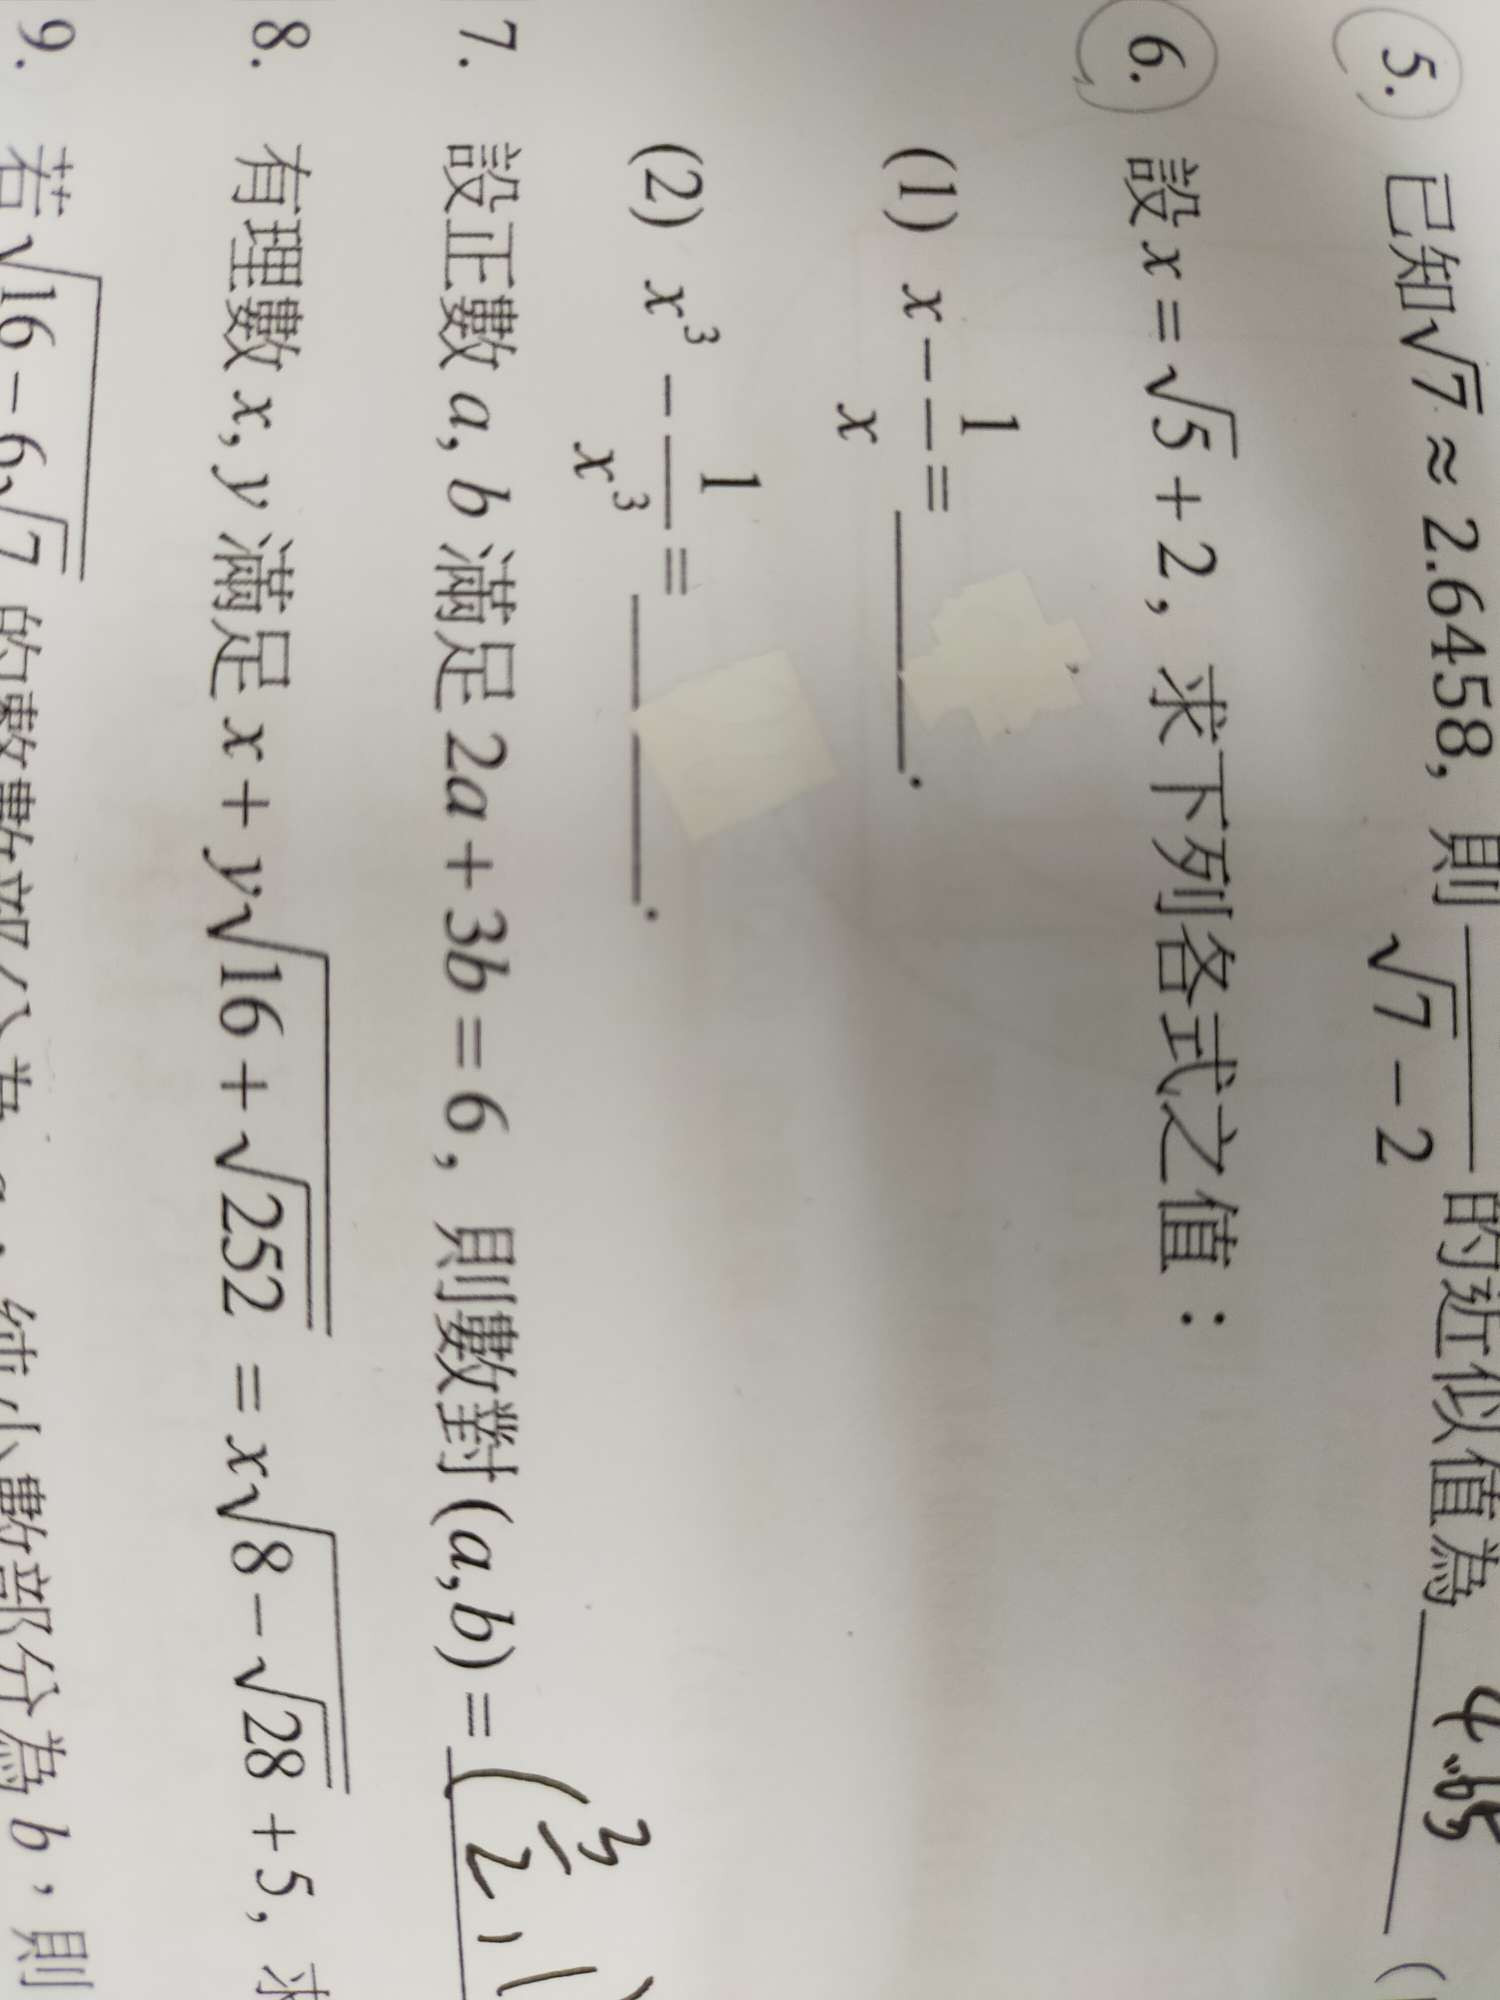 5. 已知√7 ≈ 2.6458, 則 ___/(√7 − 2) 的近似值為
6. 設 x = √5 + 2, 求下列各式之值：
(1) x − 1/x = ______.
(2) x³ − 1/x³ = ______.
7. 設正數 a, b 滿足 2a + 3b = 6, 則數對 (a, b) = (3/2, 1)
8. 有理數 x, y 滿足 x + y√(16 + √252) = x√(8 − √28) + 5, 求
9. 若√(16 − 6√7) 的整數部分為 a，純小數部分為 b，則